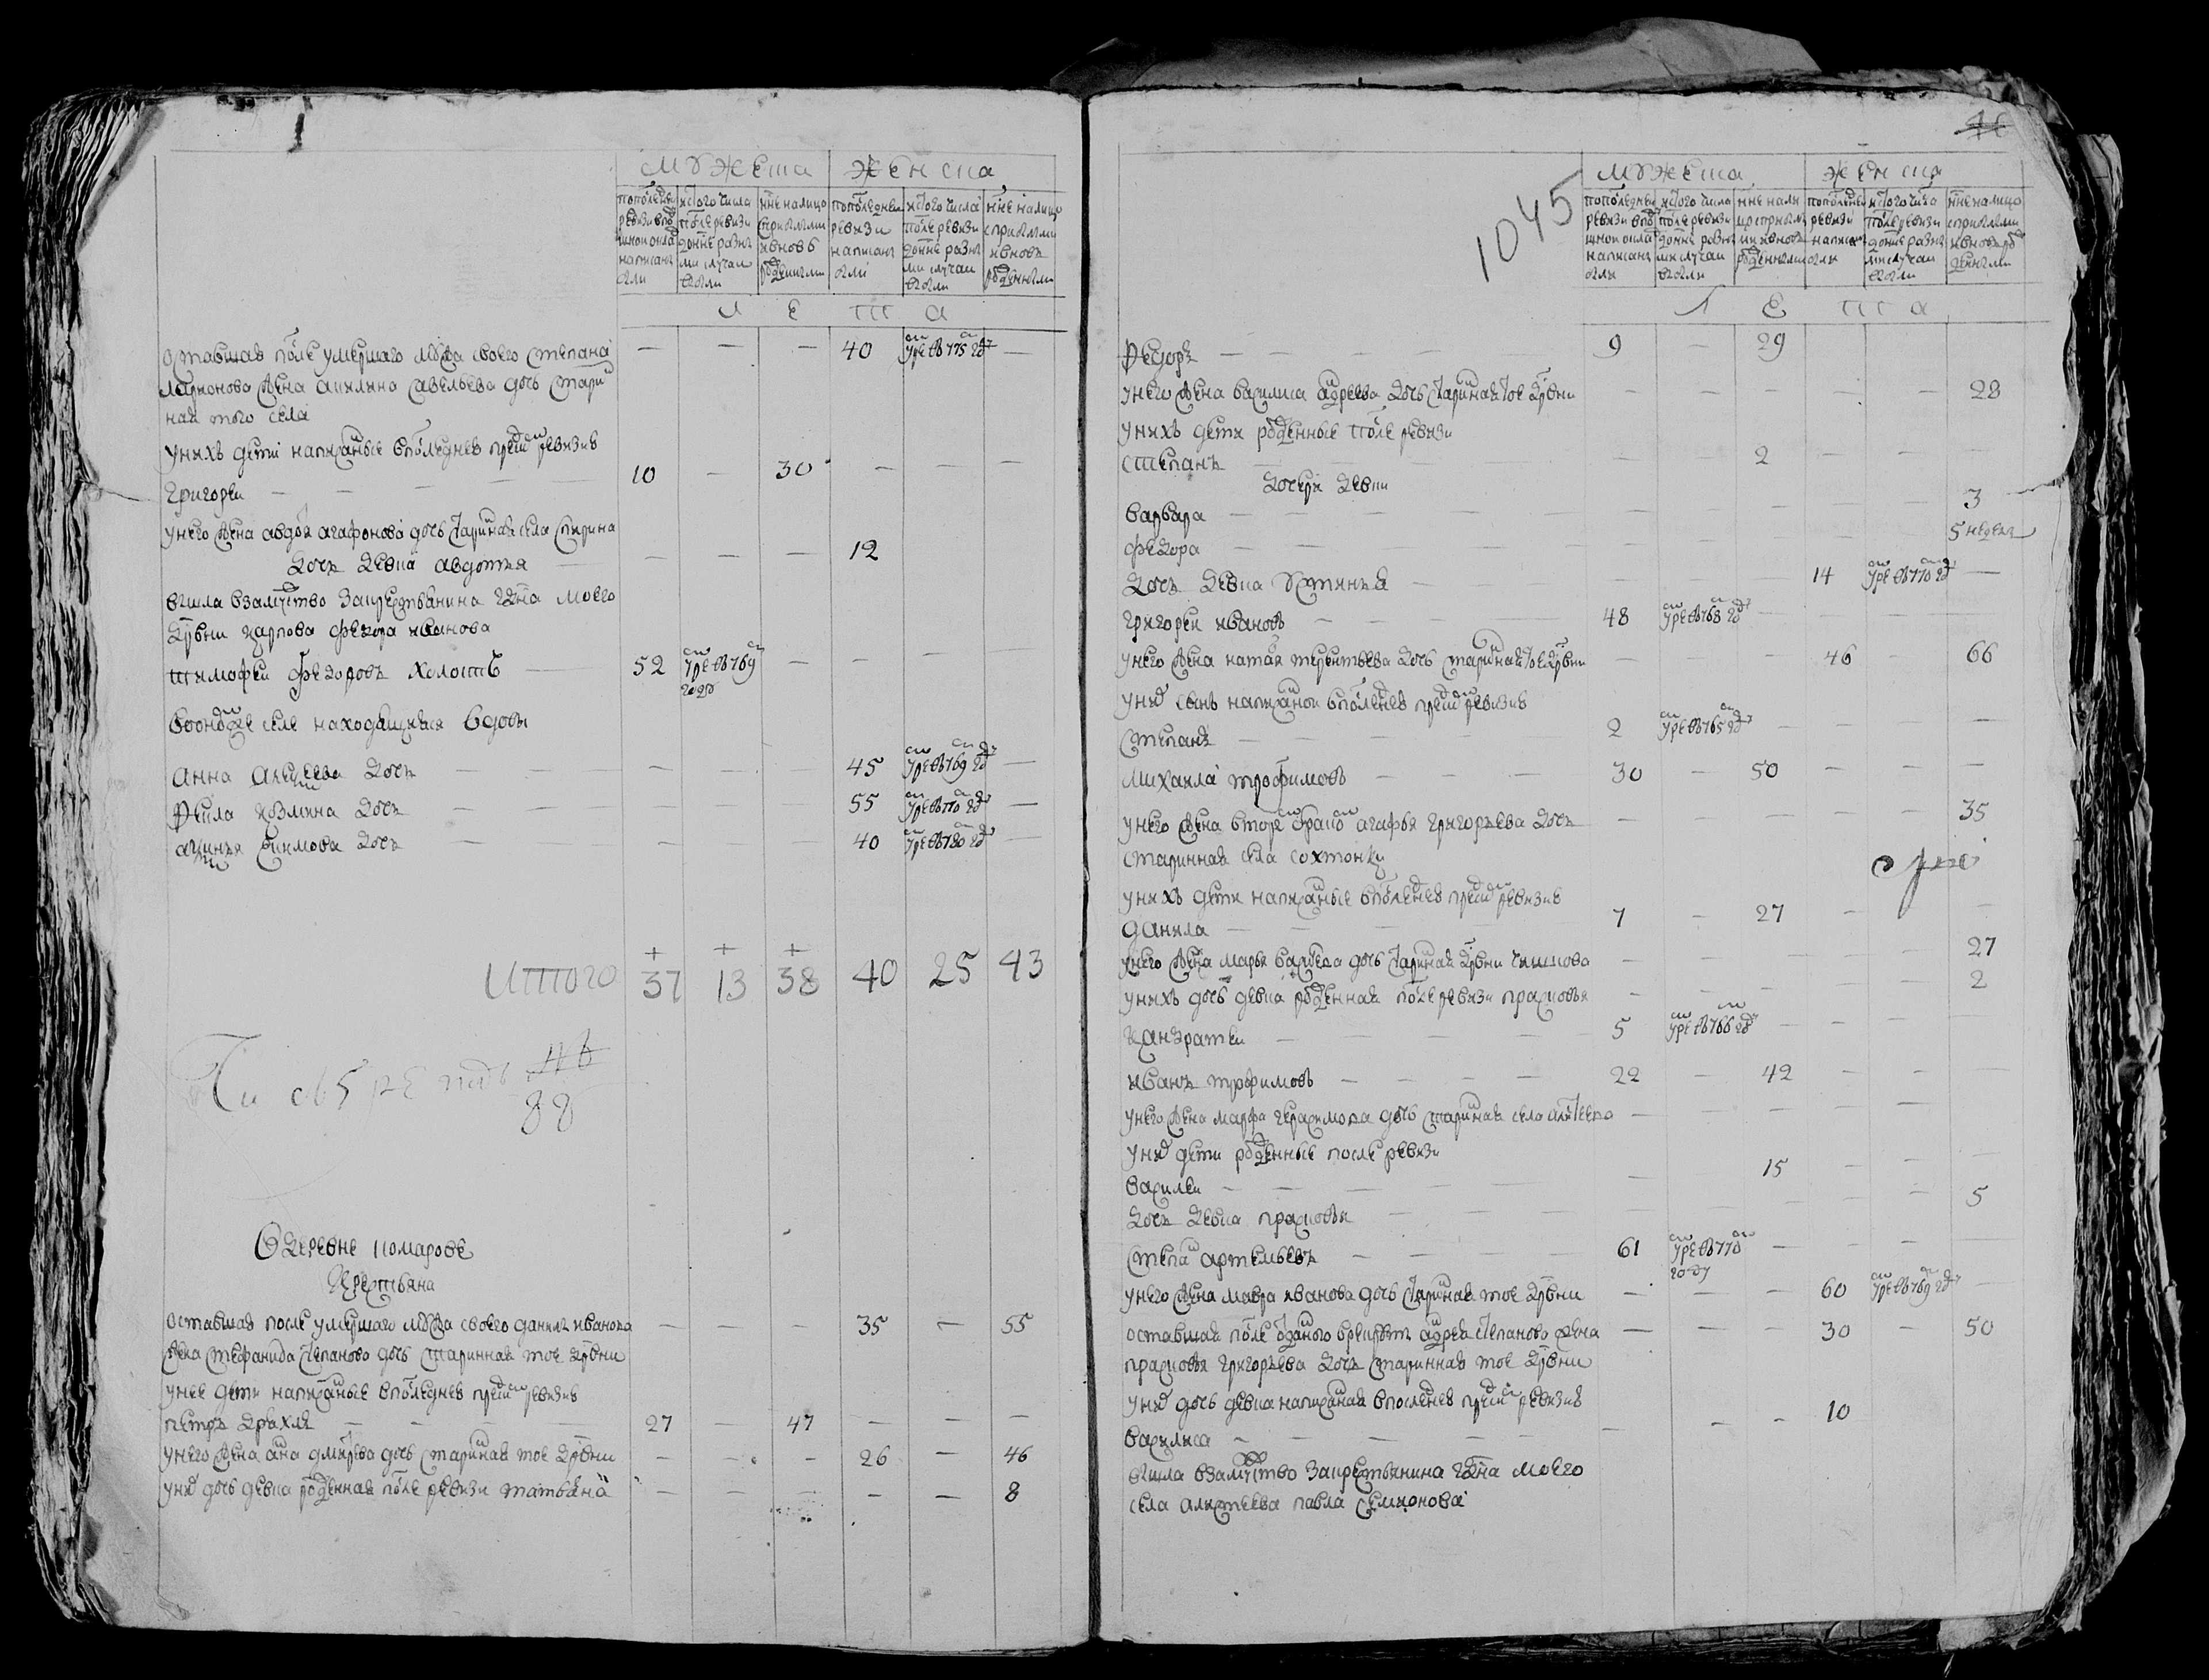 мужеска женска
пополедней ревизи вподушной оклад написаны были
истого числа после ревизи доныне разными случаи выбыли
ныне налицо сприбылыми ивновь рожденными
пополедней ревизи написаны были
истого числа после ревизи доныне разными случаи выбыли
ныне налицо сприбылыми ивновь рожденными
лета
оставшая после умершаго мужа своего степана — — — 40 умре въ 775 году —
ларионова жена акилина савельева дочь стари
ная того села
у нихъ дети написаные в последней пред сей ревизие
григореи — 10 — 30 — — —
у него жена авдотя агафонова дочь старинная села спирина
дочь девка авдотья — — — — 12
вышла взамужство закрестьянина гдна моего
деревни карпова федора иванова
тимофеи федоровъ холостъ — 52 умре въ 769 году — — — —
воономже селе находящияся вдовы
анна алексеева дочь — — — — 45 умре въ 769 году —
фекла козмина дочь — — — — 55 умре въ 770 году —
аксинья екимова дочь — — — — 40 умре въ 780 году —
Итого 37 13 38 40 25 43
88
В деревне комарове
крестьяна
оставшая после умершаго мужа своего данила иванова — — — 35 — 55
жена стефанида степанова дочь старинная тое деревни
у нее дети написаные в последней пред сей ревизие
петръ дряхлъ — 27 — 47 — — —
у него жена анна дмитрева дочь старинная тое деревни — — — 26 — 46
у них дочь девка рожденная после ревизи татьяна — — — — — 8
46
1045
мужеска женска
пополедней ревизи вподушной оклад написаны были
истого числа после ревизи доныне разными случаи выбыли
ныне налицо сприбылыми ивновь рожденными
пополедней ревизи написаны были
истого числа после ревизи доныне разными случаи выбыли
ныне налицо сприбылыми ивновь рожденными
лета
Федоръ — 9 — 29
у него жена василиса андреева дочь старинная тое деревни — — — — — 28
у нихъ дети рожденные после ревизи
степанъ — — — 2 — — —
дочери девки
варвара — — — — — — 3
федора — — — — — — 5 недель
дочь девка устинья — 14 умре въ 770 году —
григореи ивановъ — 48 умре въ 768 году — — — —
у него жена наталя терентьева дочь старинная тое деревни — — — 46 — 66
у них сынъ написаной в последней пред сей ревизие
степанъ — 2 умре въ 765 году — — — —
михаила трофимовъ — 30 — 50 — — —
у него жена второго браку агафья григорьева дочь — — — — — 35
старинная села сохтонки
у нихъ дети написаные в последней пред сей ревизие
данила — 7 — 27 — — —
у него жена марья васильева дочь старинная деревни — — — — — 27
у нихъ дочь девка рожденная после ревизи прасковья — — — — — 2
кандратеи — 5 умре въ 766 году — — — —
иванъ трофимовъ — 22 — 42 — — —
у него жена марфа герасимова дочь старинная села алистеева — — — — —
у них дети рожденные после ревизи
василеи — — — 15 — — —
дочь девка прасковья — — — — — — 5
степан артемьевъ — 61 умре въ 770 году — — — —
у него жена мавра иванова дочь старинная тое деревни — — — 60 умре въ 769 году —
оставшая после отданого врекруты андрея степанова жена — — — 30 — 50
прасковья григорьева дочь старинная тое деревни
у них дочь девка написаная в последней пред сей ревизие
василиса — — — — 10
вышла взамужство закрестьянина гдна моего
села алистеева павла семионова